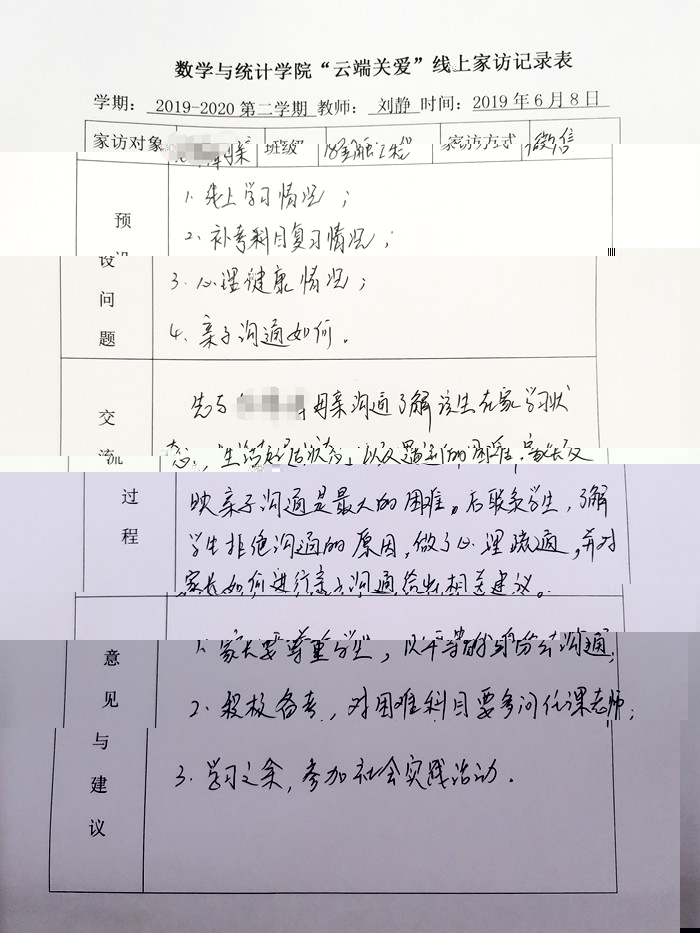 数学与统计学院“云端关爱”线上家访记录表
学期： 2019-2020 第二学期 教师： 刘静 时间：2019 年 6 月 8 日
家访对象 班级 18金融工程 家访方式 微信
预设问题
1. 线上学习情况；
2. 补考科目复习情况；
3. 心理健康情况；
4. 亲子沟通如何。
交流过程
先与 母亲沟通了解该生在家学习状
态，生活状态，以及遇到的困难，家长反
映亲子沟通是最大的困难。后联系学生，了解
学生拒绝沟通的原因，做了心理疏通，并对
家长如何进行亲子沟通给出相关建议。
意见与建议
1. 家长要尊重学生，以平等的身份去沟通；
2. 积极备考，对困难科目要多问任课老师；
3. 学习之余，参加社会实践活动．